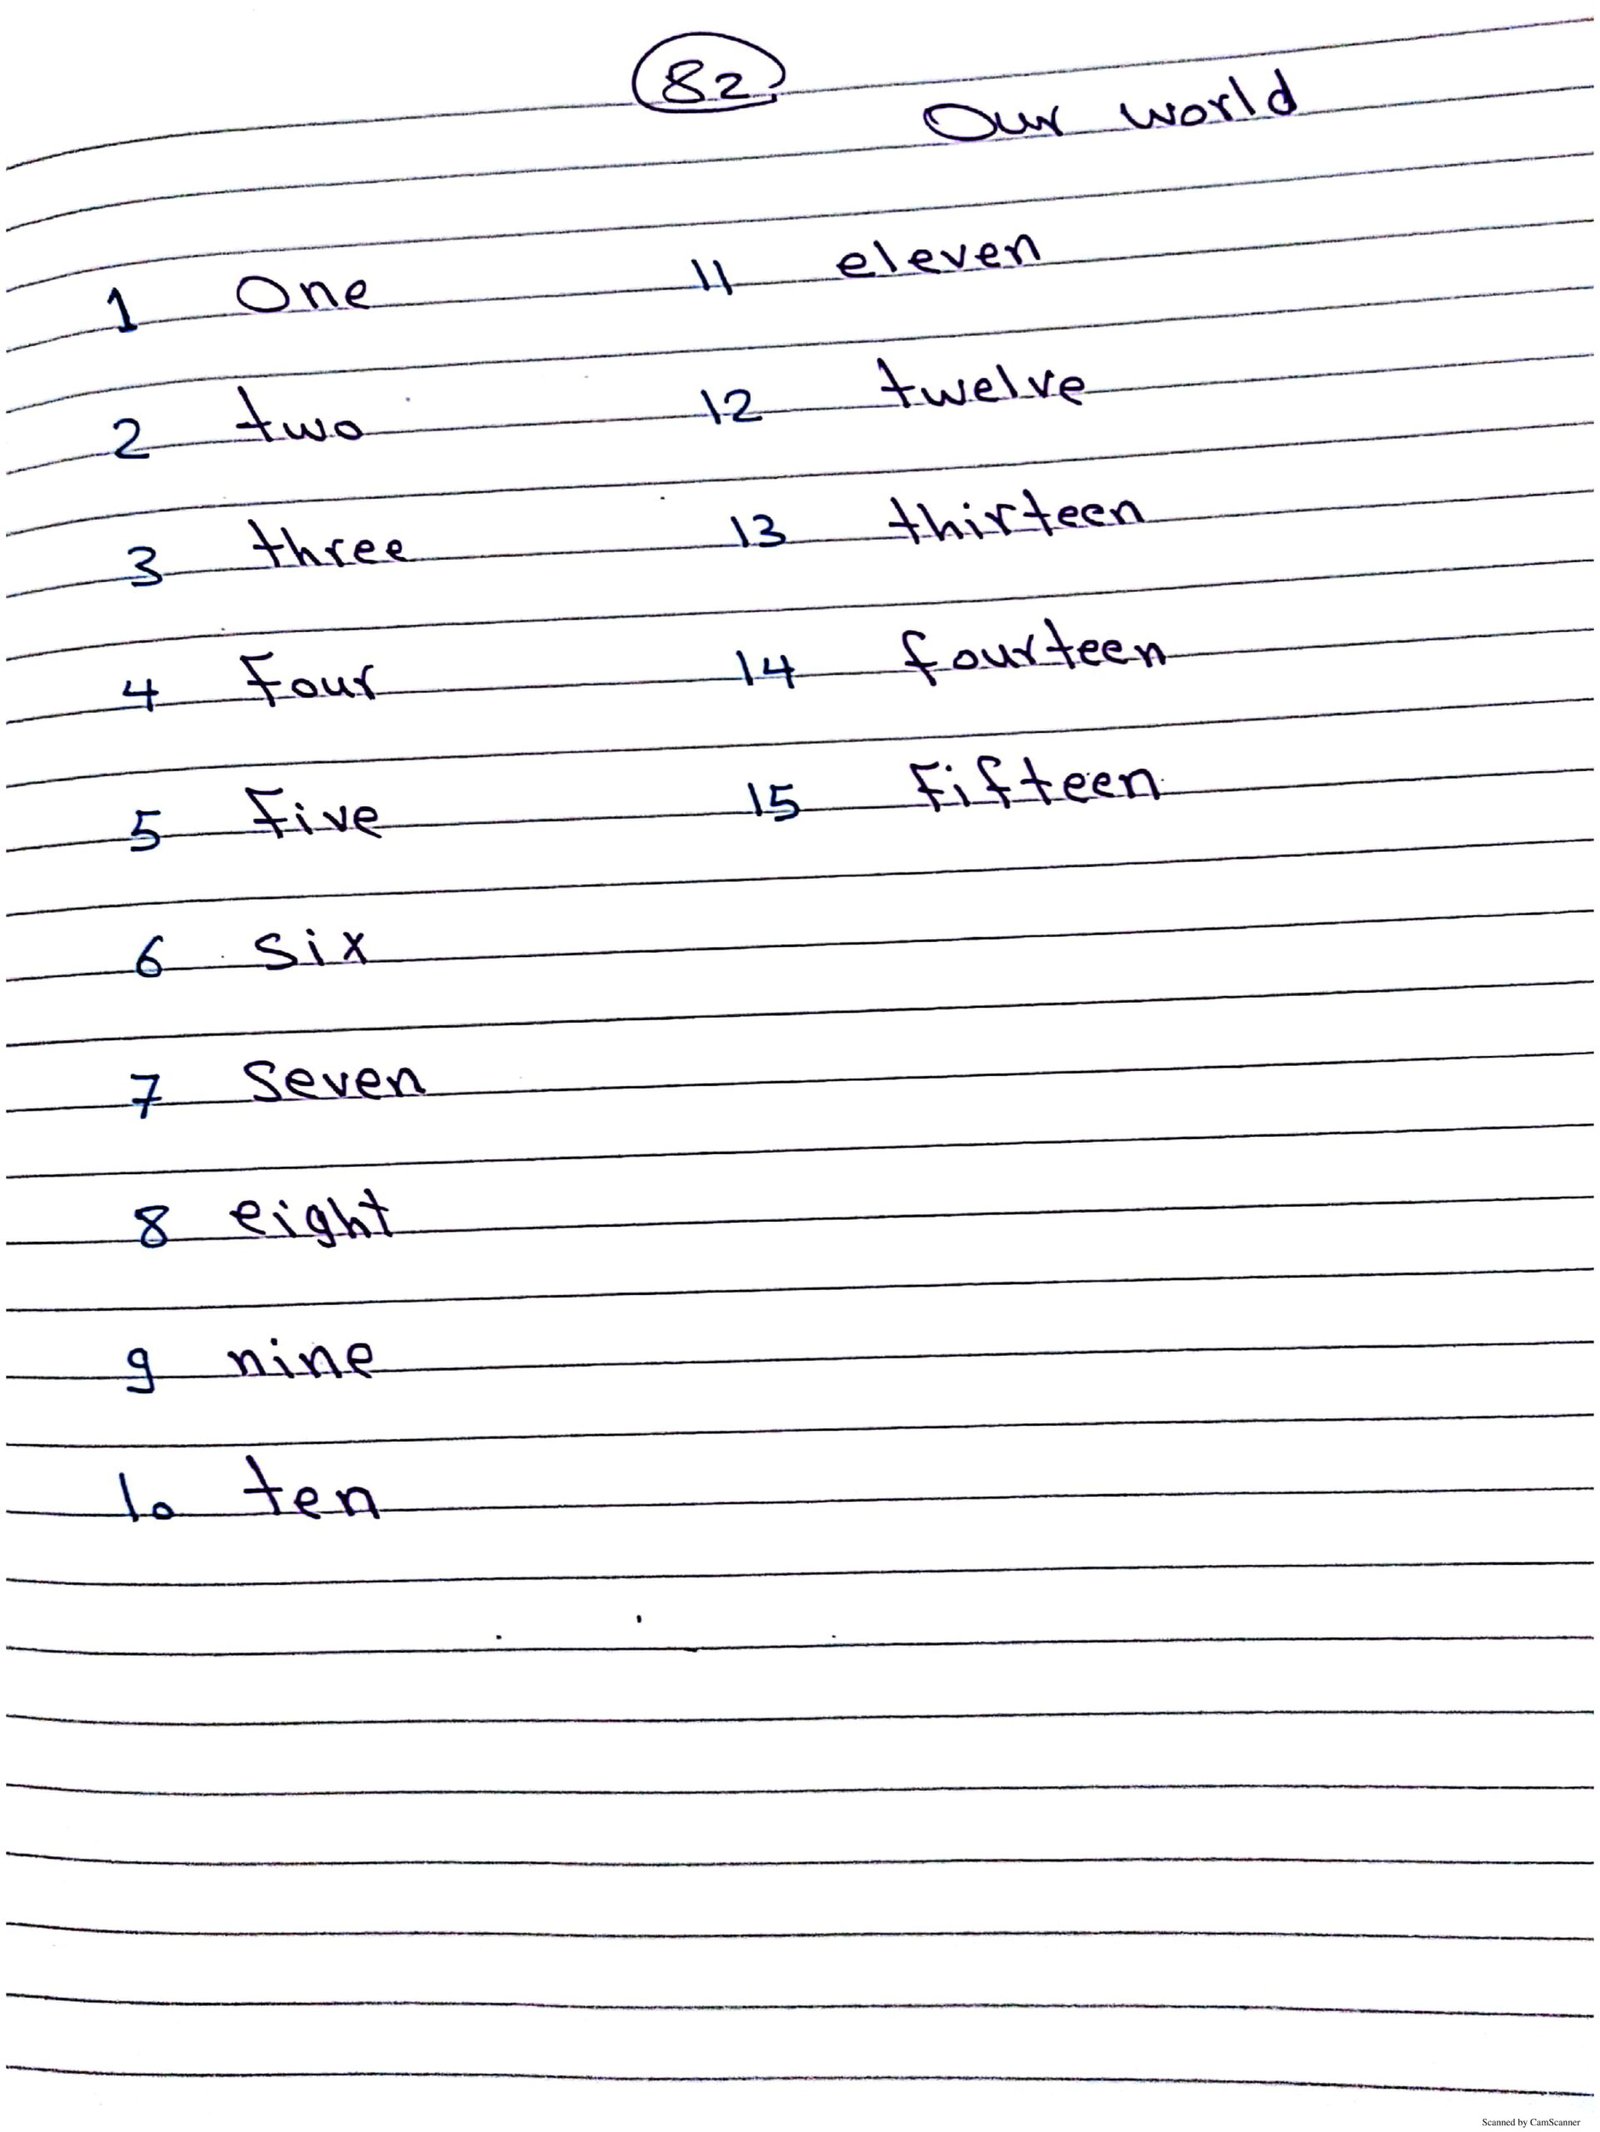 82
Our world
1 One 11 eleven
2 two 12 twelve
3 three 13 thirteen
4 Four 14 fourteen
5 Five 15 Fifteen
6 six
7 Seven
8 eight
9 nine
10 ten
Scanned by CamScanner